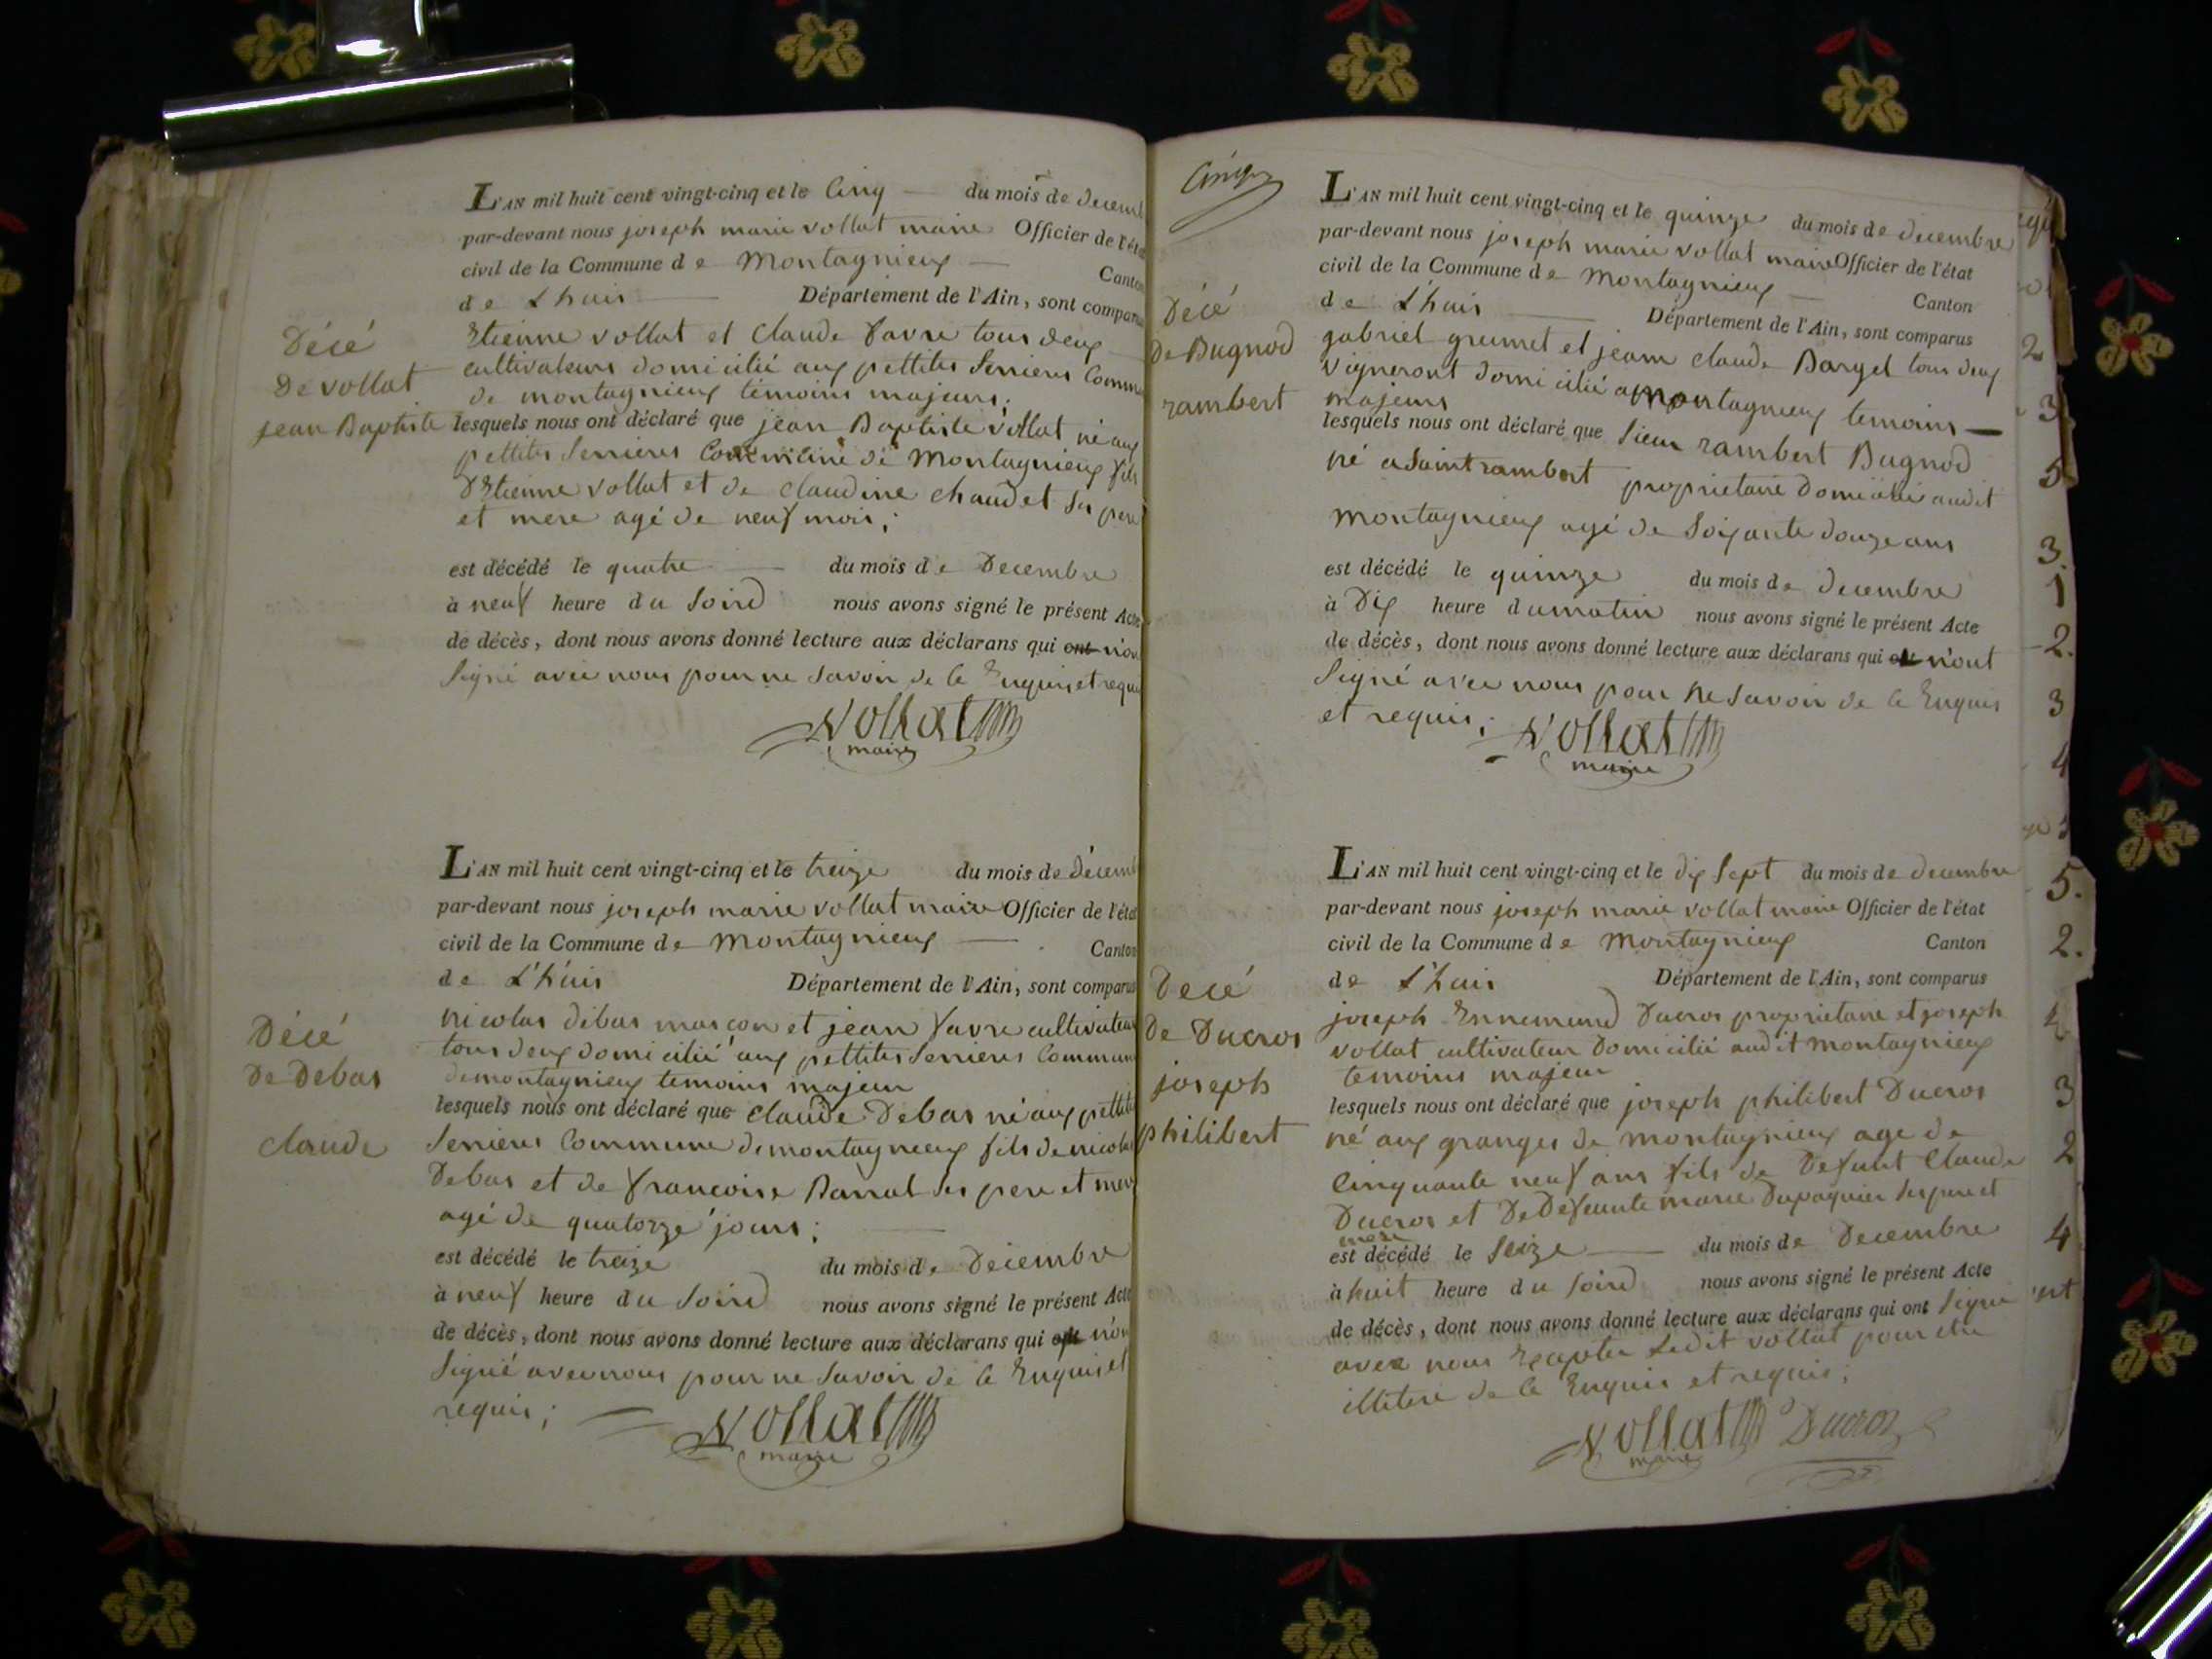 L'AN mil huit cent vingt-cinq et le Cinq du mois de decemb
par-devant nous joseph marie vollat maire Officier de l'état
civil de la Commune de Montagnieux Canton
de L'huis Département de l'Ain, sont comparus
Décé
De vollat
jean Baptiste
Etienne vollat et Claude favre tous deux
cultivateurs domicilié aux pettites Serrieres Commu
de montagnieux témoins majeurs;
lesquels nous ont déclaré que jean Baptiste vollat né aux
pettites Serrieres Commune de Montagnieux fils
D'Etienne vollat et de claudine chaudet ses pere
et mere agé de neuf mois;
est décédé le quatre du mois de Decembre
à neuf heure du Soird nous avons signé le présent Acte
de décès, dont nous avons donné lecture aux déclarans qui ont n'on
Signé avec nous pour ne Savoir de ce Enquis et requi
Vollat
maire
L'AN mil huit cent vingt-cinq et le treize du mois de Décemb
par-devant nous joseph marie vollat maire Officier de l'état
civil de la Commune de Montagnieux Canton
de L'huis Département de l'Ain, sont comparus
Décé
De Debas
claude
nicolas débas mascon et jean favre cultivateur
tous deux domicilié aux pettites Serrieres Commune
demontagnieux temoins majeur
lesquels nous ont déclaré que claude Debas né aux pettites
Serrieres Commune demontagnieux fils de nicolas
Debas et de francoise Barral ses pere et mere
agé de quatorze jours;
est décédé le treize du mois de Décembre
à neuf heure du Soird nous avons signé le présent Acte
de décès, dont nous avons donné lecture aux déclarans qui ont n'on
Signé avec nous pour ne Savoir de ce Enquis et
requis;
Vollat
maire
Cinq
L'AN mil huit cent vingt-cinq et le quinze du mois de decembre
par-devant nous joseph marie vollat maire Officier de l'état
civil de la Commune de Montagnieux Canton
de L'huis Département de l'Ain, sont comparus
Décé
De Bugnod
rambert
gabriel grumet et jeam claude Bargel tous deux
vigneront domicilié a montagnieux temoins
majeurs
lesquels nous ont déclaré que Sieur rambert Bugnod
né a Saint rambert proprietaire Domicilié audit
montagnieux agé de Soixante douze ans
est décédé le quinze du mois de Decembre
à Dix heure du matin nous avons signé le présent Acte
de décès, dont nous avons donné lecture aux déclarans qui ont n'ont
Signé avec nous pour ne Savoir de ce Enquis
et requis;
Vollat
maire
L'AN mil huit cent vingt-cinq et le dix Sept du mois de decembre
par-devant nous joseph marie vollat maire Officier de l'état
civil de la Commune de Montagnieux Canton
de L'huis Département de l'Ain, sont comparus
Décé
De Ducros
joseph
philibert
joseph Ennemund Ducros proprietaire et joseph
vollat cultivateur Domicilié audit montagnieux
temoins majeur
lesquels nous ont déclaré que joseph philibert Ducros
né aux granges de montagnieux age de
Cinquante neuf ans fils de Defunt Claude
Ducros et DeDefunte marie Dupaquier Ses pere et
mere
est décédé le Seize du mois de Decembre
à huit heure du Soird nous avons signé le présent Acte
de décès, dont nous avons donné lecture aux déclarans qui ont Signé
avec nous Excepter Ledit vollat pour etre
illitere de ce Enquis et requis;
Vollat Ducros
maire
2
3
5
3.
1
2.
3
4
5.
2.
3
2
4